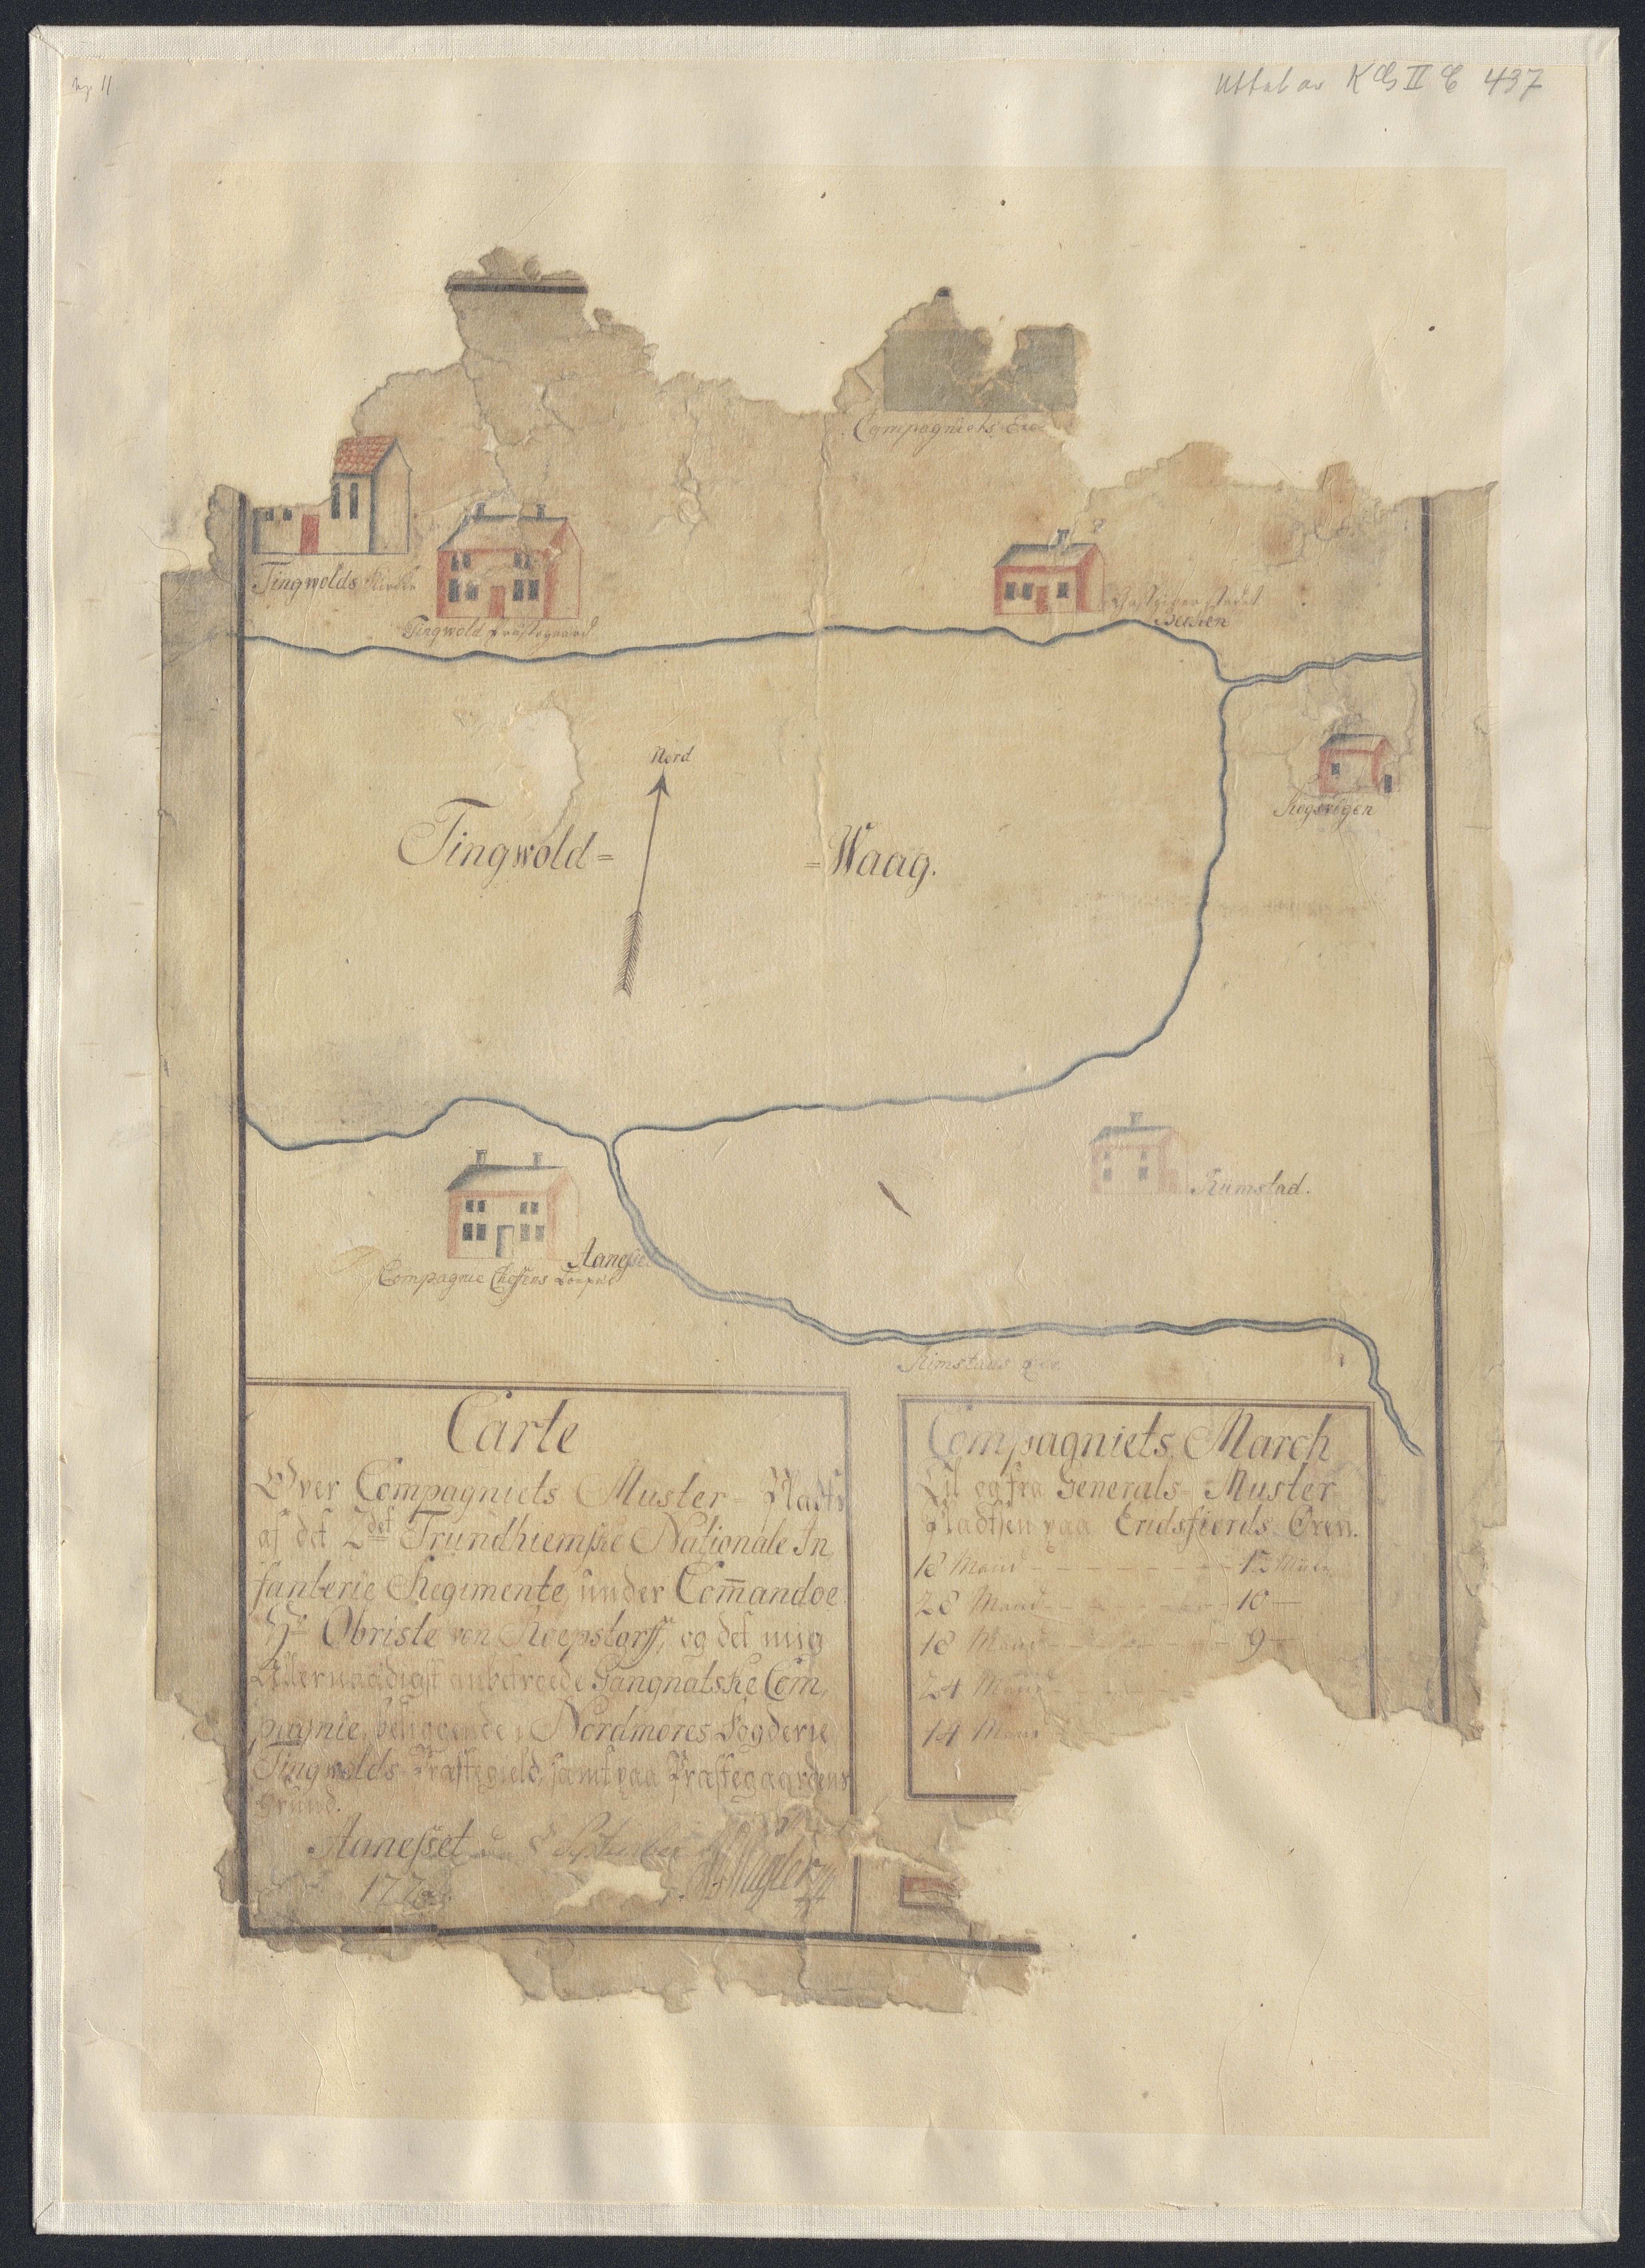 No. 11
Uttat av K G II C 437
Compagniets Exe
Tingwolds Kirke
Tingwold Præstegaard
Giæstgiver stædet
Nord
Kogsvigen
Tingwold=
=Waag.
Rimstad.
Aanesset
Compagnie Cheffens
Rimstads
Carte
Over Compagniets Muster= Plads
af det 2det Trundhiemske Nationale In,
fanterie Regimente, under Com̄andoe
Hr Obriste von Roepstorff, og det mig
Allernaadigst anbetroede Tangnatske Com,
pagnie, beliggende i Nordmøres Fogderie
Tingwolds Præstegield, samt paa Præstegaardens
Grund.
Aanesset den 8 September
177
Compagniets March
Til og fra Generals= Muster
Pladsen paa Eridsfiords Øren.
18 Mand - - - - - - -
28 Mand - - - - - 10 —
18 Mand - - - - - 9 —
24 Mand - - -
14 Mand